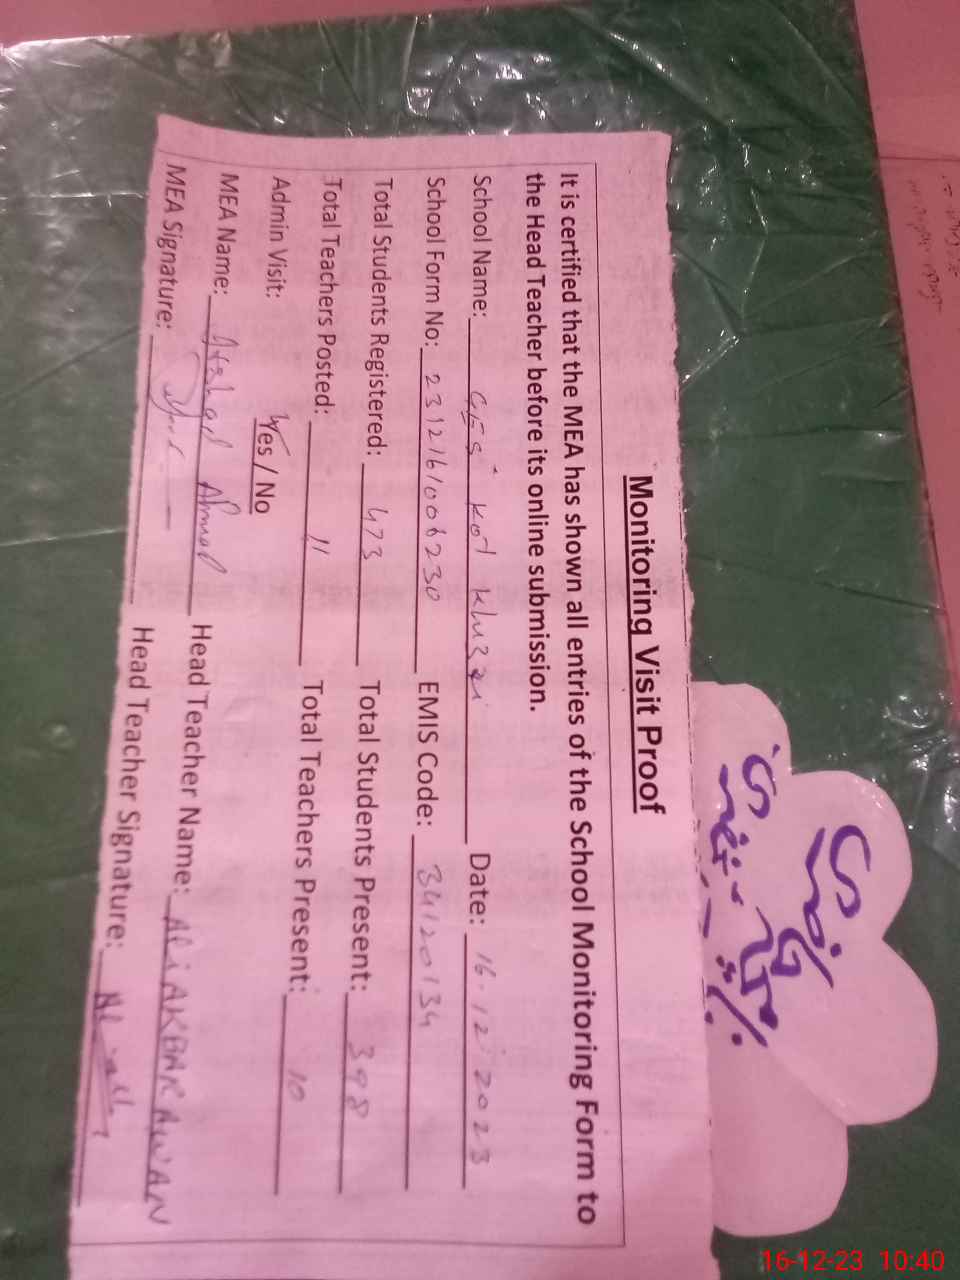 Monitoring Visit Proof
It is certified that the MEA has shown all entries of the School Monitoring Form to
the Head Teacher before its online submission.
School Name: GES Kot Khuzai Date: 16.12.2023
School Form No: 2312161006230 EMIS Code: 34120134
Total Students Registered: 473 Total Students Present: 398
Total Teachers Posted: 11 Total Teachers Present: 10
Admin Visit: Yes / No
MEA Name: Ahmad Head Teacher Name: ALi AKBAR AWAN
MEA Signature: Head Teacher Signature:
16-12-23 10:40